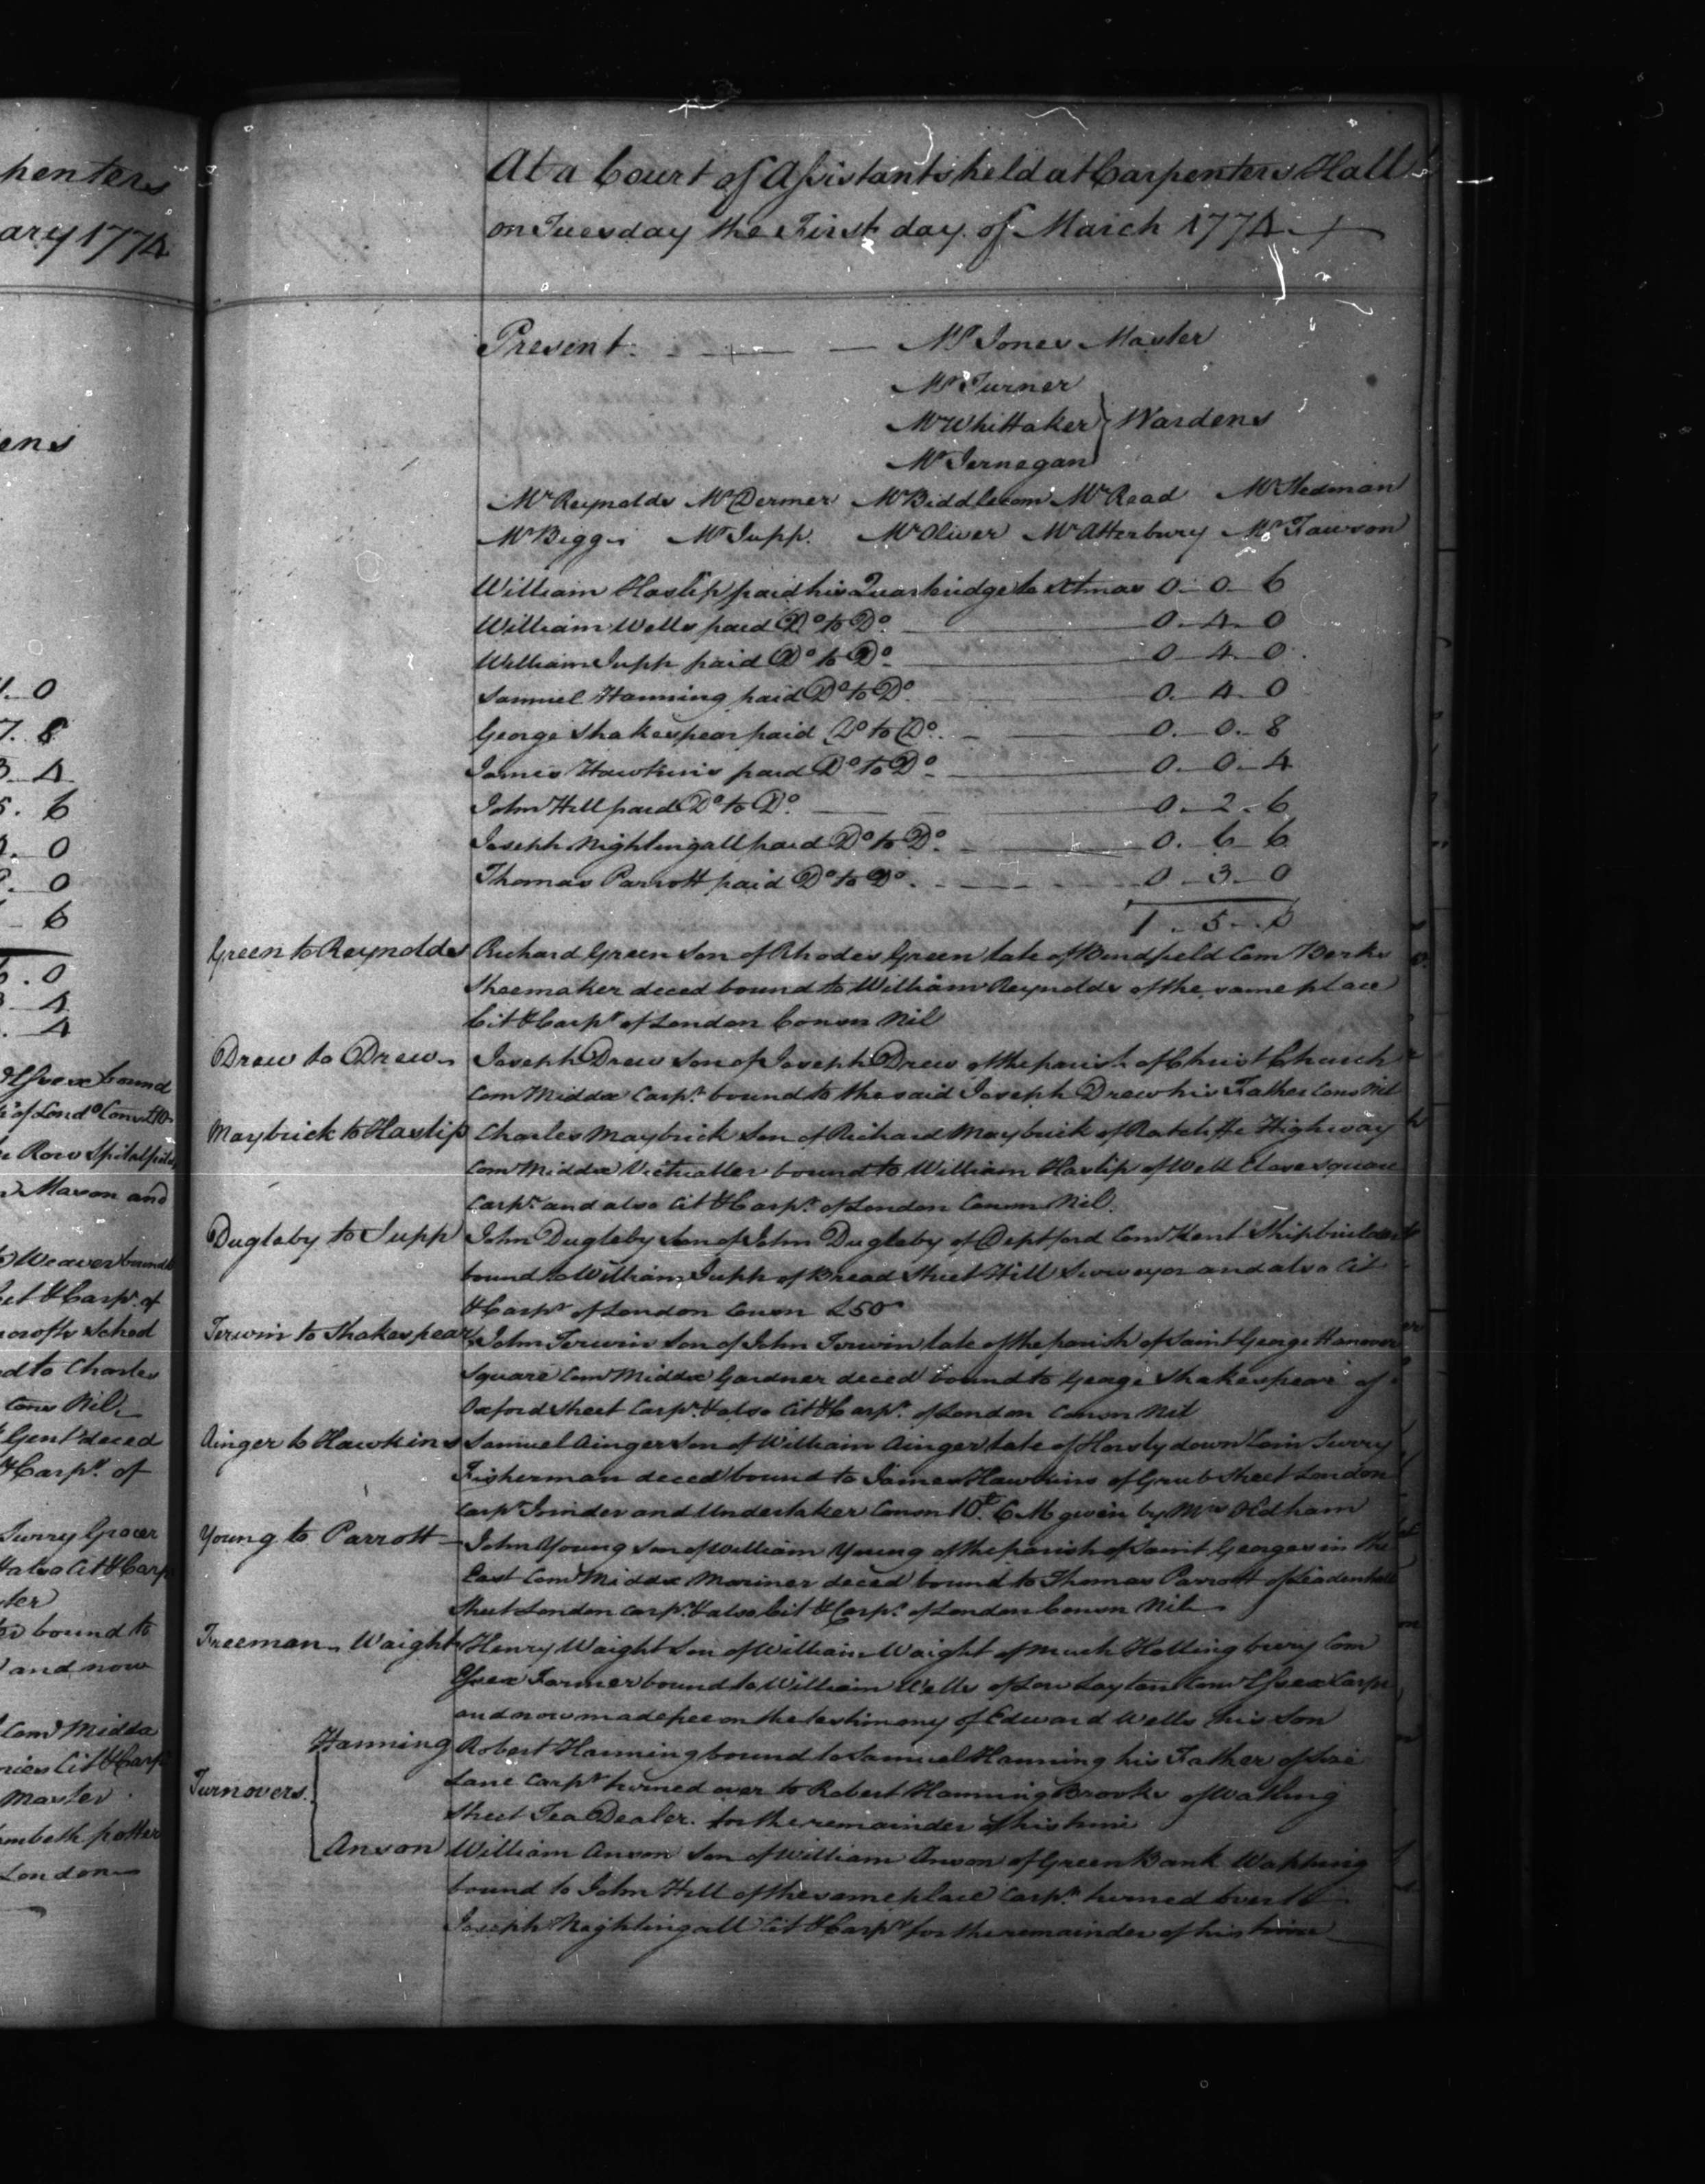 henters
ary 1774
ens
0
7. 8
4
6
0
0
6
0
4
4
Essex bound
of Lond.o Cons £10
Row Spitalfields
Mason and
Weaver bound
& Carpr. of
School
d to Charles
Cons Nil
Gent deced
& Carpr. of
Surry Grocer
& also Cit & Carpr
bound to
and now
Com Middx
Cit & Carpr
Master
mbeth potter
London
At a Court of Assistants held at Carpenters Hall
on Tuesday the First day of March 1774
Present. Mr Jones Master
Mr Turner
Mr Whittaker } Wardens
Mr Jernegan
Mr Reynolds Mr Dermer Mr Biddlecom Mr Read Mr Stedman
Mr Biggs Mr Jupp. Mr Oliver Mr Atterbury Mr Fawson
William Haslip paid his Quarteridge to Xtmas 0. 0. 6
William Wells paid Do to Do 0. 4. 0
William Jupp paid Do to Do 0 4. 0
Samuel Hanning paid Do to Do 0. 4. 0
George Shakespear paid Do to Do. 0. 0. 8
James Hawkins paid Do to Do 0. 0. 4
John Hill paid Do to Do 0. 2. 6
Joseph Nightingall paid Do to Do. 0. 6 6
Thomas Parrott paid Do to Do. 0. 3. 0
1. 5. 6
Green to Reynolds Richard Green Son of Rhodes Green late of Bindfield Com Berks
Shoemaker deced bound to William Reynolds of the same place
Cit & Carpr of London Conson Nil
Drew to Drew Joseph Drew Son of Joseph Drew of the parish of Christ Church
Com Middx Carpr. bound to the said Joseph Drew his Father Cons Nil
Maybrick to Haslip Charles Maybrick Son of Richard Maybrick of Ratcliffe Highway
Com Middx Victualler bound to William Haslip of Well Close Square
Carpr. and also Cit & Carpr. of London Conson Nil.
Dugleby to Jupp John Dugleby Son of John Dugleby of Deptford Com Kent Shipbuilder
bound to William Jupp of Bread Street Hill Surveyor and also Cit
& Carpr of London Conson £50
Terwin to Shakespear John Terwin Son of John Terwin late of the parish of Saint George Hanover
Square Com Middx Gardner deced bound to George Shakespear of
Oxford Street Carpr. & also Cit & Carpr. of London Conson Nil
Ainger to Hawkins Samuel Ainger Son of William Ainger late of Horslydown Com Surry
Fisherman deced bound to James Hawkins of Grub Street London
Carpr Joinder and Undertaker Conson 10£. C M given by Mrs Oldham
Young to Parrott John Young Son of William Young of the parish of Saint Georges in the
East Com Middx Mariner deced bound to Thomas Parrott of Leadenhall
Street London Carpr. & also Cit & Carpr. of London Conson Nil
Freeman Waight Henry Waight Son of William Waight of Much Hallingbury Com
Essex Farmer bound to William Wells of Low Layton Com Essex Carpr
and now made free on the testimony of Edward Wells his Son
Hanning Robert Hanning bound to Samuel Hanning his Father of Size
Turnovers. Lane Carpr turned over to Robert Hanning Brooks of Watling
Street Tea Dealer. for the remainder of his time
Anson William Anson Son of William Anson of Green Bank Wapping
bound to John Hill of the same place Carpr. turned over to
Joseph Nightingall Cit & Carpr for the remainder of his time